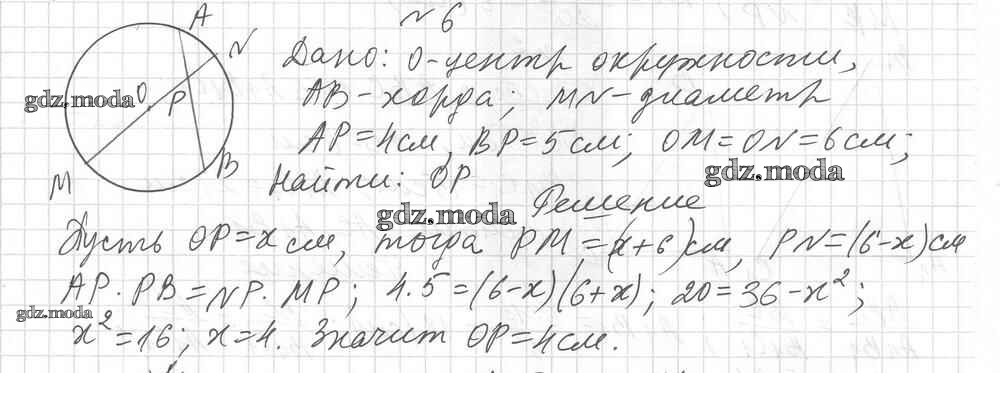 №6
A
N
O
P
M
B
gdz.moda
Дано: O-центр окружности,
AB-хорда; MN-диаметр
AP=4см, BP=5см; OM=ON=6см;
gdz.moda
Найти: OP
gdz.moda
Решение
Пусть OP=x см, тогда PM=(x+6)см, PN=(6-x)см
AP·PB=NP·MP; 4·5=(6-x)(6+x); 20=36-x²;
gdz.moda
x²=16; x=4. Значит OP=4см.